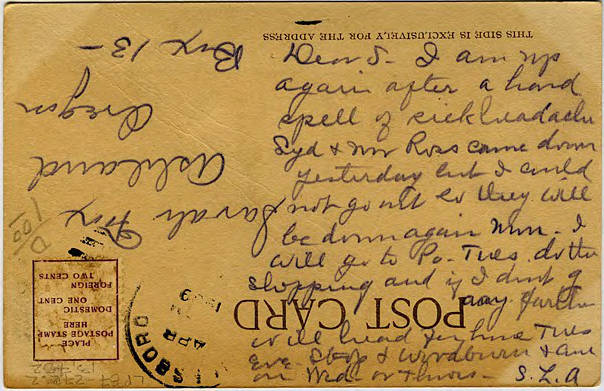 THIS SIDE IS EXCLUSIVELY FOR THE ADDRESS
Dear S- I am up
again after a hard
spell of sickheadache
Syd & Mr Ross came down
yesterday but I could
not go out so they will
be down again Mon. I
will go to Po- Tues. do the
shopping and if I dont g
any further
will head for home Tues
eve Stop & Woodburn &
on Wed. or Thurs- S.L.A
POST CARD
Sarah Fox
Ashland
Oregon
Box 13-
PLACE
POSTAGE STAMP
HERE
DOMESTIC
ONE CENT
FOREIGN
TWO CENTS
LSBORO
APR